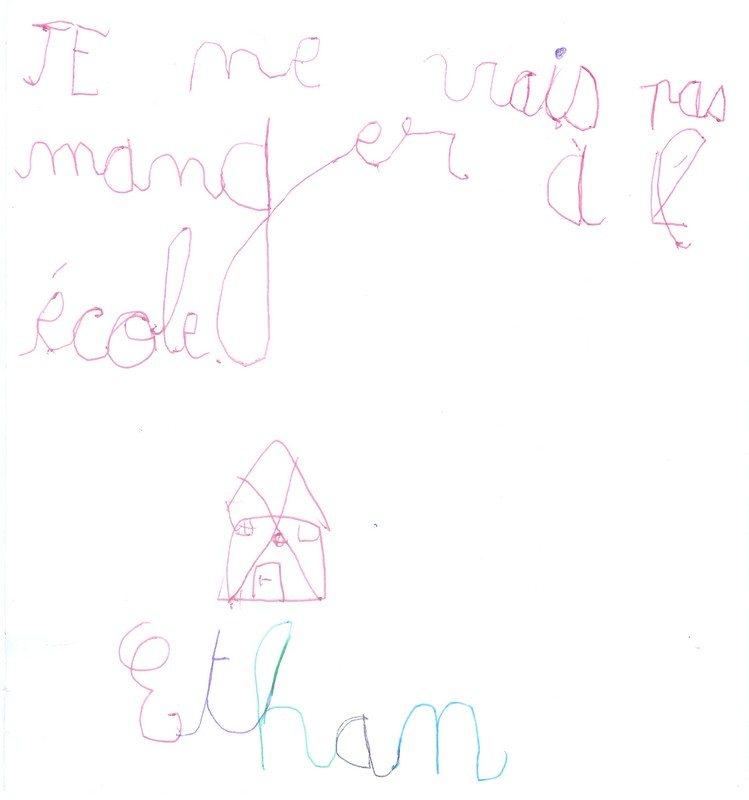 JE me vrais pas
manger à l
école
Ethan